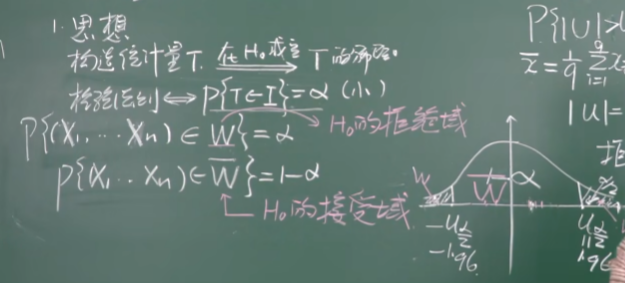 1. 思想
构造统计量T. 在H₀成立 T的分布.
检验法则⇔P{T∈I}=α (小)
P{(X₁,…Xₙ)∈W}=α
H₀的拒绝域
P{(X₁…Xₙ)∈W̅}=1-α
H₀的接受域
P{|U|>
x̅=1/9 Σ⁹ᵢ₌₁
|U|=
拒
W W̅ α
-U α/2 U α/2
-1.96 1.96